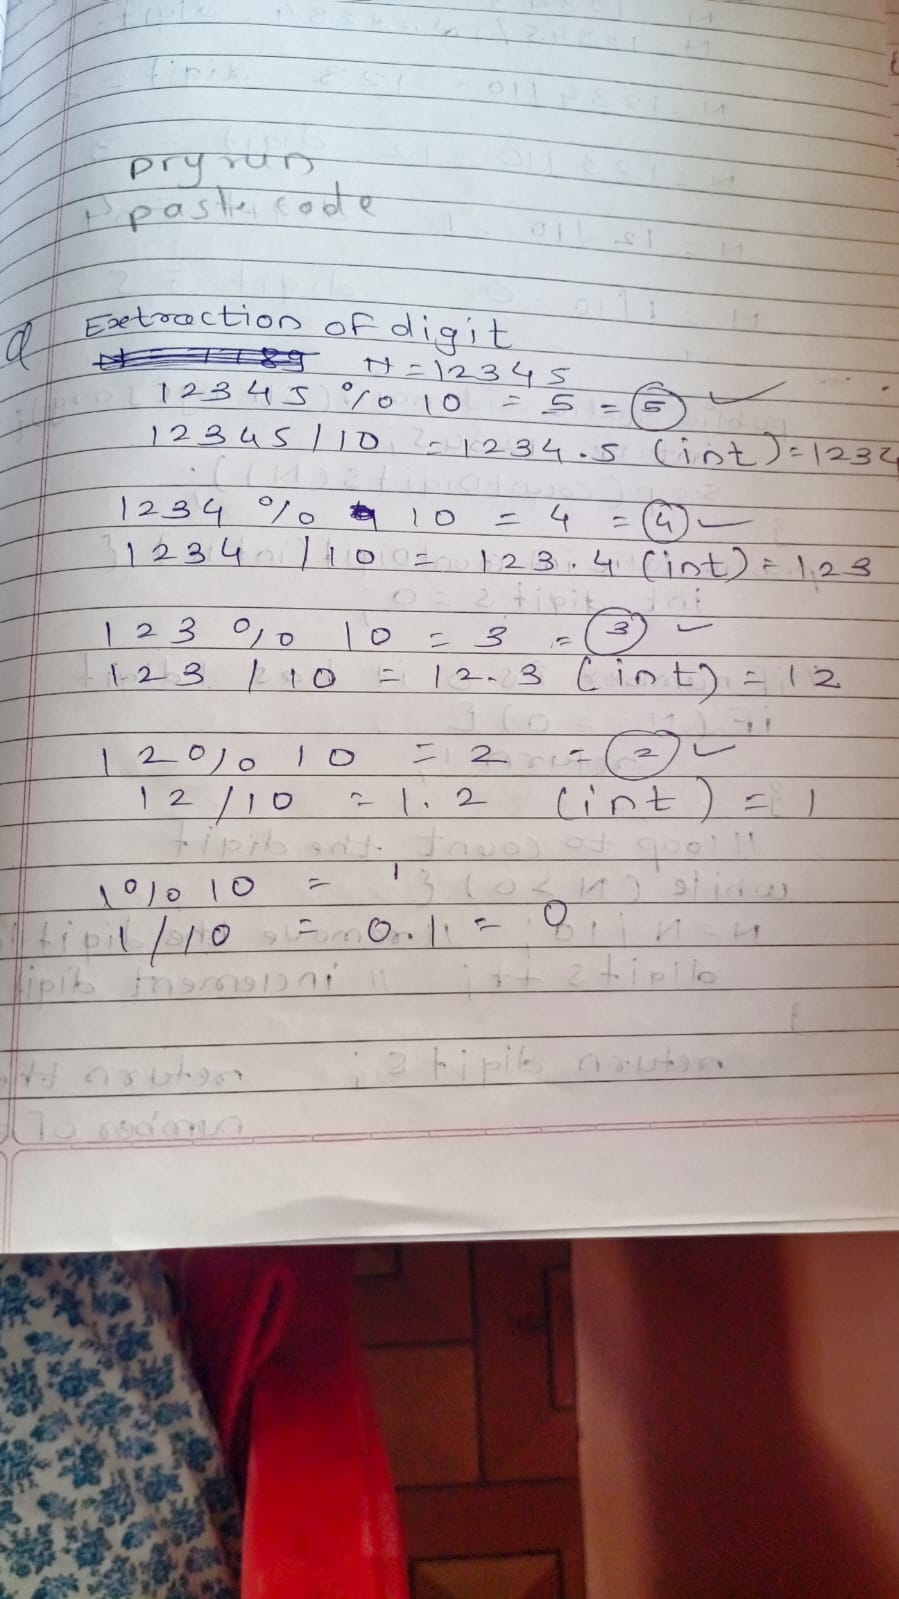 Dry run
paste code
Q Extraction of digit
N = 12345
12345 % 10 = 5 = 5 ✓
12345 / 10 = 1234.5 (int) = 1234
1234 % 10 = 4 = 4 ✓
1234 / 10 = 123.4 (int) = 123
123 % 10 = 3 = 3 ✓
123 / 10 = 12.3 (int) = 12
12 % 10 = 2 = 2 ✓
12 / 10 = 1.2 (int) = 1
1 % 10 = 1
1 / 10 = 0.1 = 0